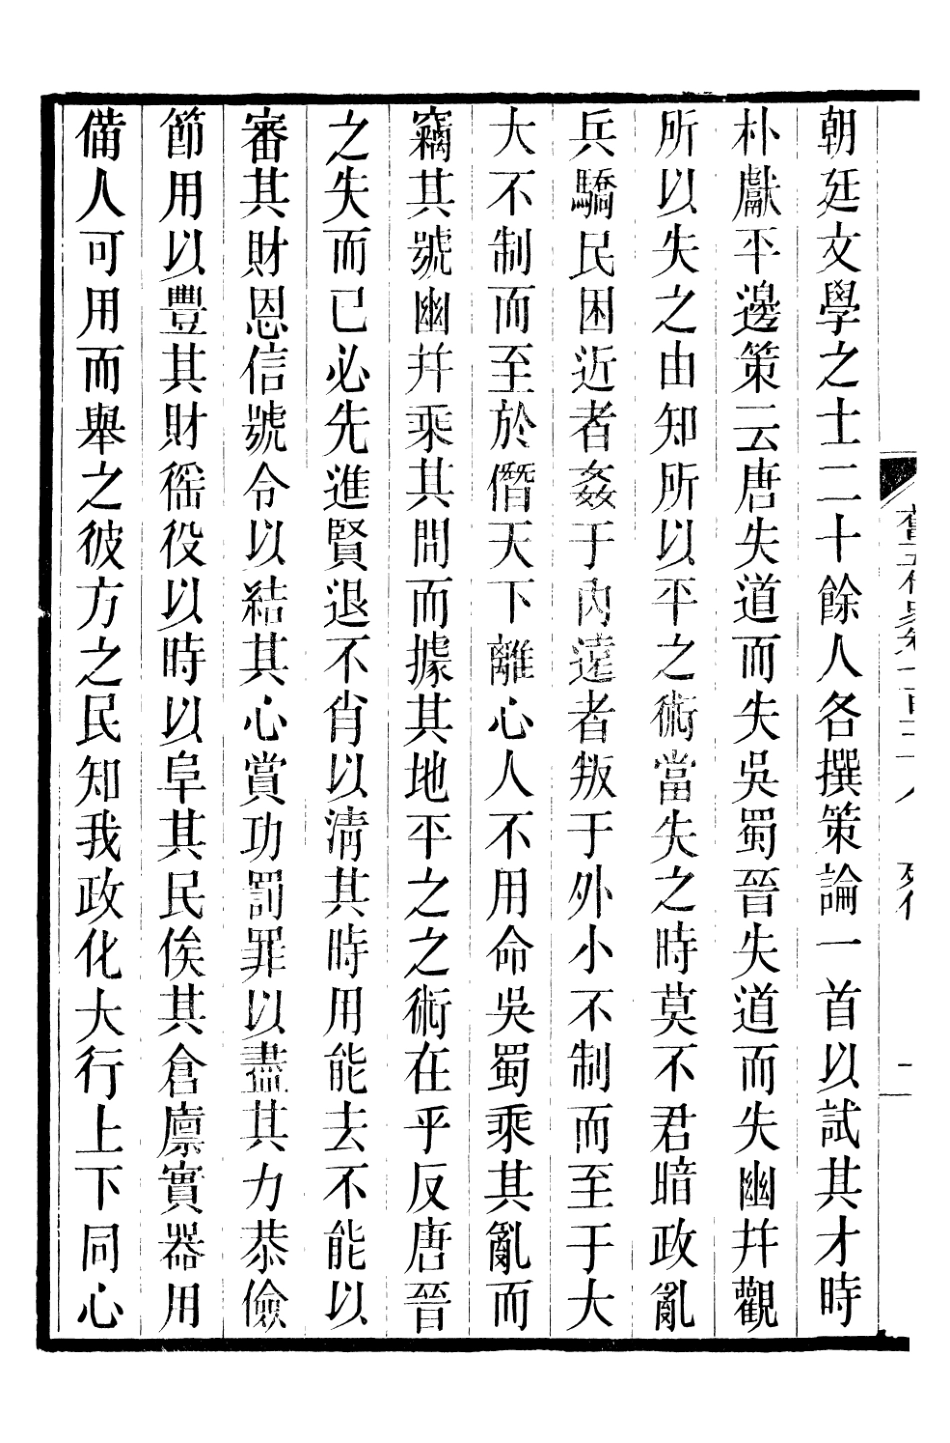 朝廷文學之士二十餘人各撰策論一首以試其才時
朴獻平邊策云唐失道而失吳蜀晉失道而失幽幷觀
所以失之由知所以平之術當失之時莫不君暗政亂
兵驕民困近者姦于內遠者叛于外小不制而至于大
大不制而至於僭天下離心人不用命吳蜀乘其亂而
竊其號幽幷乘其間而據其地平之之術在乎反唐晉
之失而已必先進賢退不肖以淸其時用能去不能以
審其財恩信號令以結其心賞功罰罪以盡其力恭儉
節用以豐其財徭役以時以阜其民俟其倉廩實器用
備人可用而舉之彼方之民知我政化大行上下同心